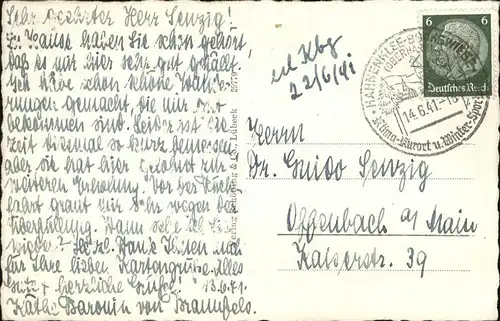 Sehr geehrter Herr Senzig!
Zu Hause haben Sie schon gehört,
daß es mir hier sehr gut gefällt.
Ich habe schon schöne Wande-
rungen gemacht, die mir gut
bekommen sind. Leider ist die
Zeit diesmal so kurz bemessen
aber sie hat hier gelohnt zur
weiteren Erholung. Vor der Rück-
fahrt graut mir sehr wegen der
Überfüllung. Wann sehe ich Sie
wieder? Herzl. Dank Ihnen und
für Ihre lieben Kartengrüße. Alles
Gute + herzliche Grüße! 13.6.41.
Käthe Baronin von
Schöning & Co., Lübeck
erl Kbg
22/6/41
6 6
Deutsches Reich
HAHNENKLEE-
14.6.41-18
Klima-Kurort u. Winter-Sport
Herrn
Dr. Guido Senzig
Offenbach a/ Main
Kaiserstr. 39